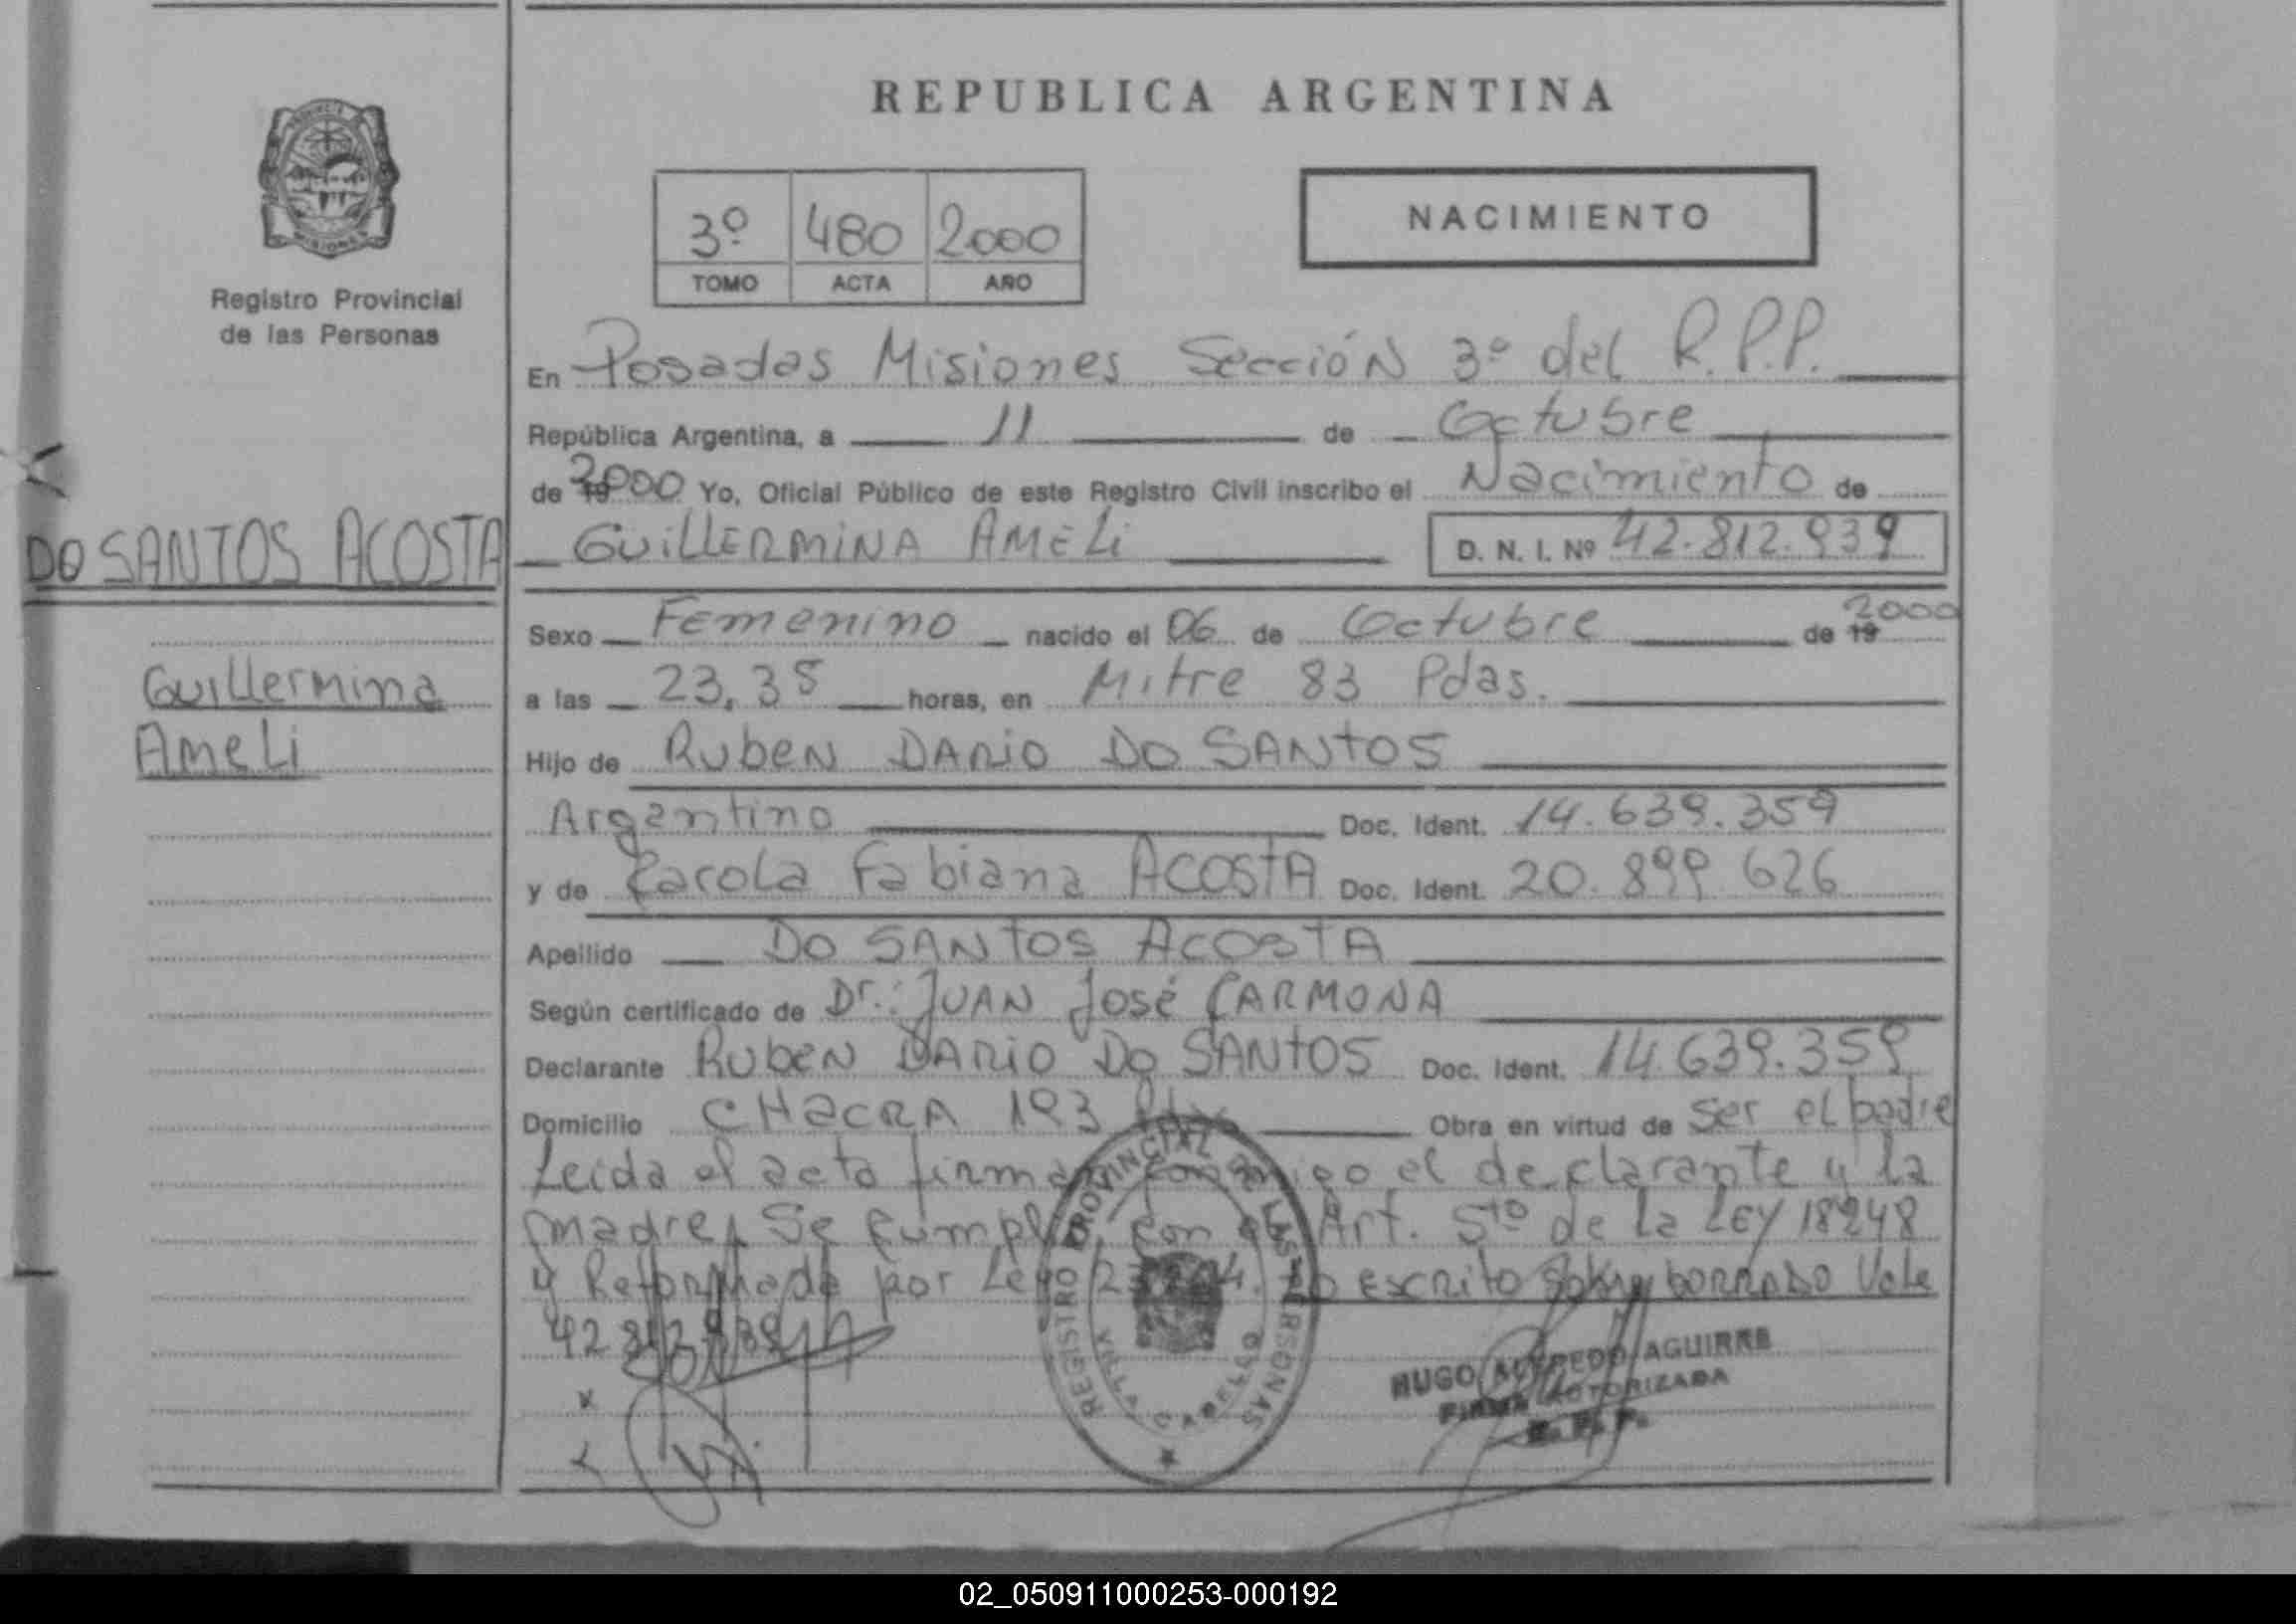 REPUBLICA ARGENTINA
PROVINCIA DE
MISIONES
Registro Provincial
de las Personas
3º 480 2000
TOMO ACTA AÑO
NACIMIENTO
En Posadas Misiones Sección 3º del R.P.P.
República Argentina, a 11 de Octubre
de 2000 Yo, Oficial Público de este Registro Civil inscribo el Nacimiento de
DO SANTOS ACOSTA
GUILLERMINA AMELI D. N. I. Nº 42.812.939
Sexo Femenino nacido el 06 de Octubre de 19 2000
Guillermina
a las 23,35 horas, en Mitre 83 Pdas.
Ameli
Hijo de Ruben DARIO DO SANTOS
Argentino Doc. Ident. 14.639.359
y de Carola Fabiana ACOSTA Doc. Ident. 20.899 626
Apellido DO SANTOS ACOSTA
Según certificado de Dr.: JUAN José CARMONA
Declarante Ruben DARIO DO SANTOS Doc. Ident. 14.639.359
Domicilio CHACRA 193 Obra en virtud de ser el padre
Leida el acta firman conmigo el declarante y la
madre, Se cumple con el Art. 5to de la LEY 18248
y Reformada por Ley Lo escrito sobre borrado Vale
42 812 939
REGISTRO PROVINCIAL DE LAS PERSONAS
VILLA CABELLO
HUGO ALFREDO AGUIRRE
FIRMA AUTORIZADA
R. P. P.
02_050911000253-000192